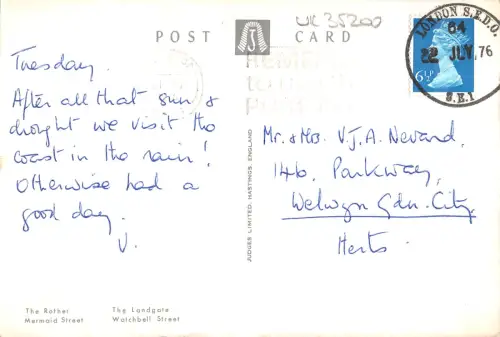 UK 35200
POST CARD
J
LONDON S.E.D.O.
64
22 JLY 76
S.E.1
6½P
Tuesday.
After all that sun &
drought we visit the
coast in the rain!
Otherwise had a
good day.
V.
Mr. & Mrs. V.J.A. Nevard,
146, Parkway,
Welwyn Gdn. City,
Herts.
JUDGES LIMITED, HASTINGS, ENGLAND.
The Rother The Landgate
Mermaid Street Watchbell Street